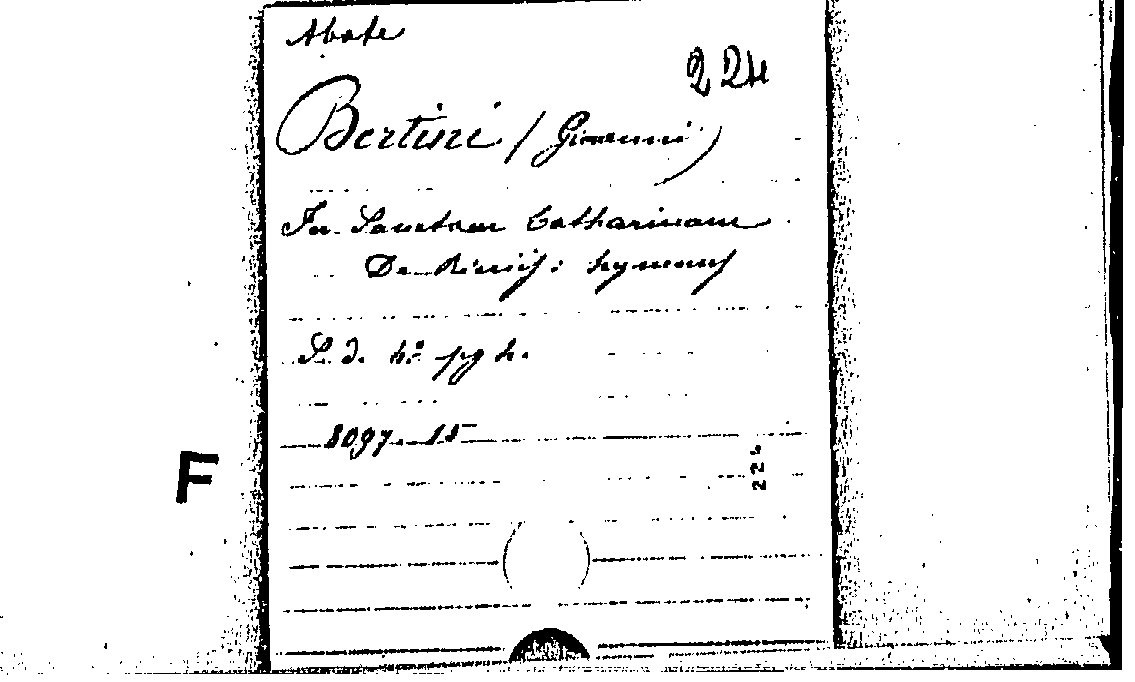 Abate
224
Bertini (Giovanni)
In Sanctam Catharinam
De Ricciis: hymnus
S. d. 4º pg 4.
8097.15
224
F